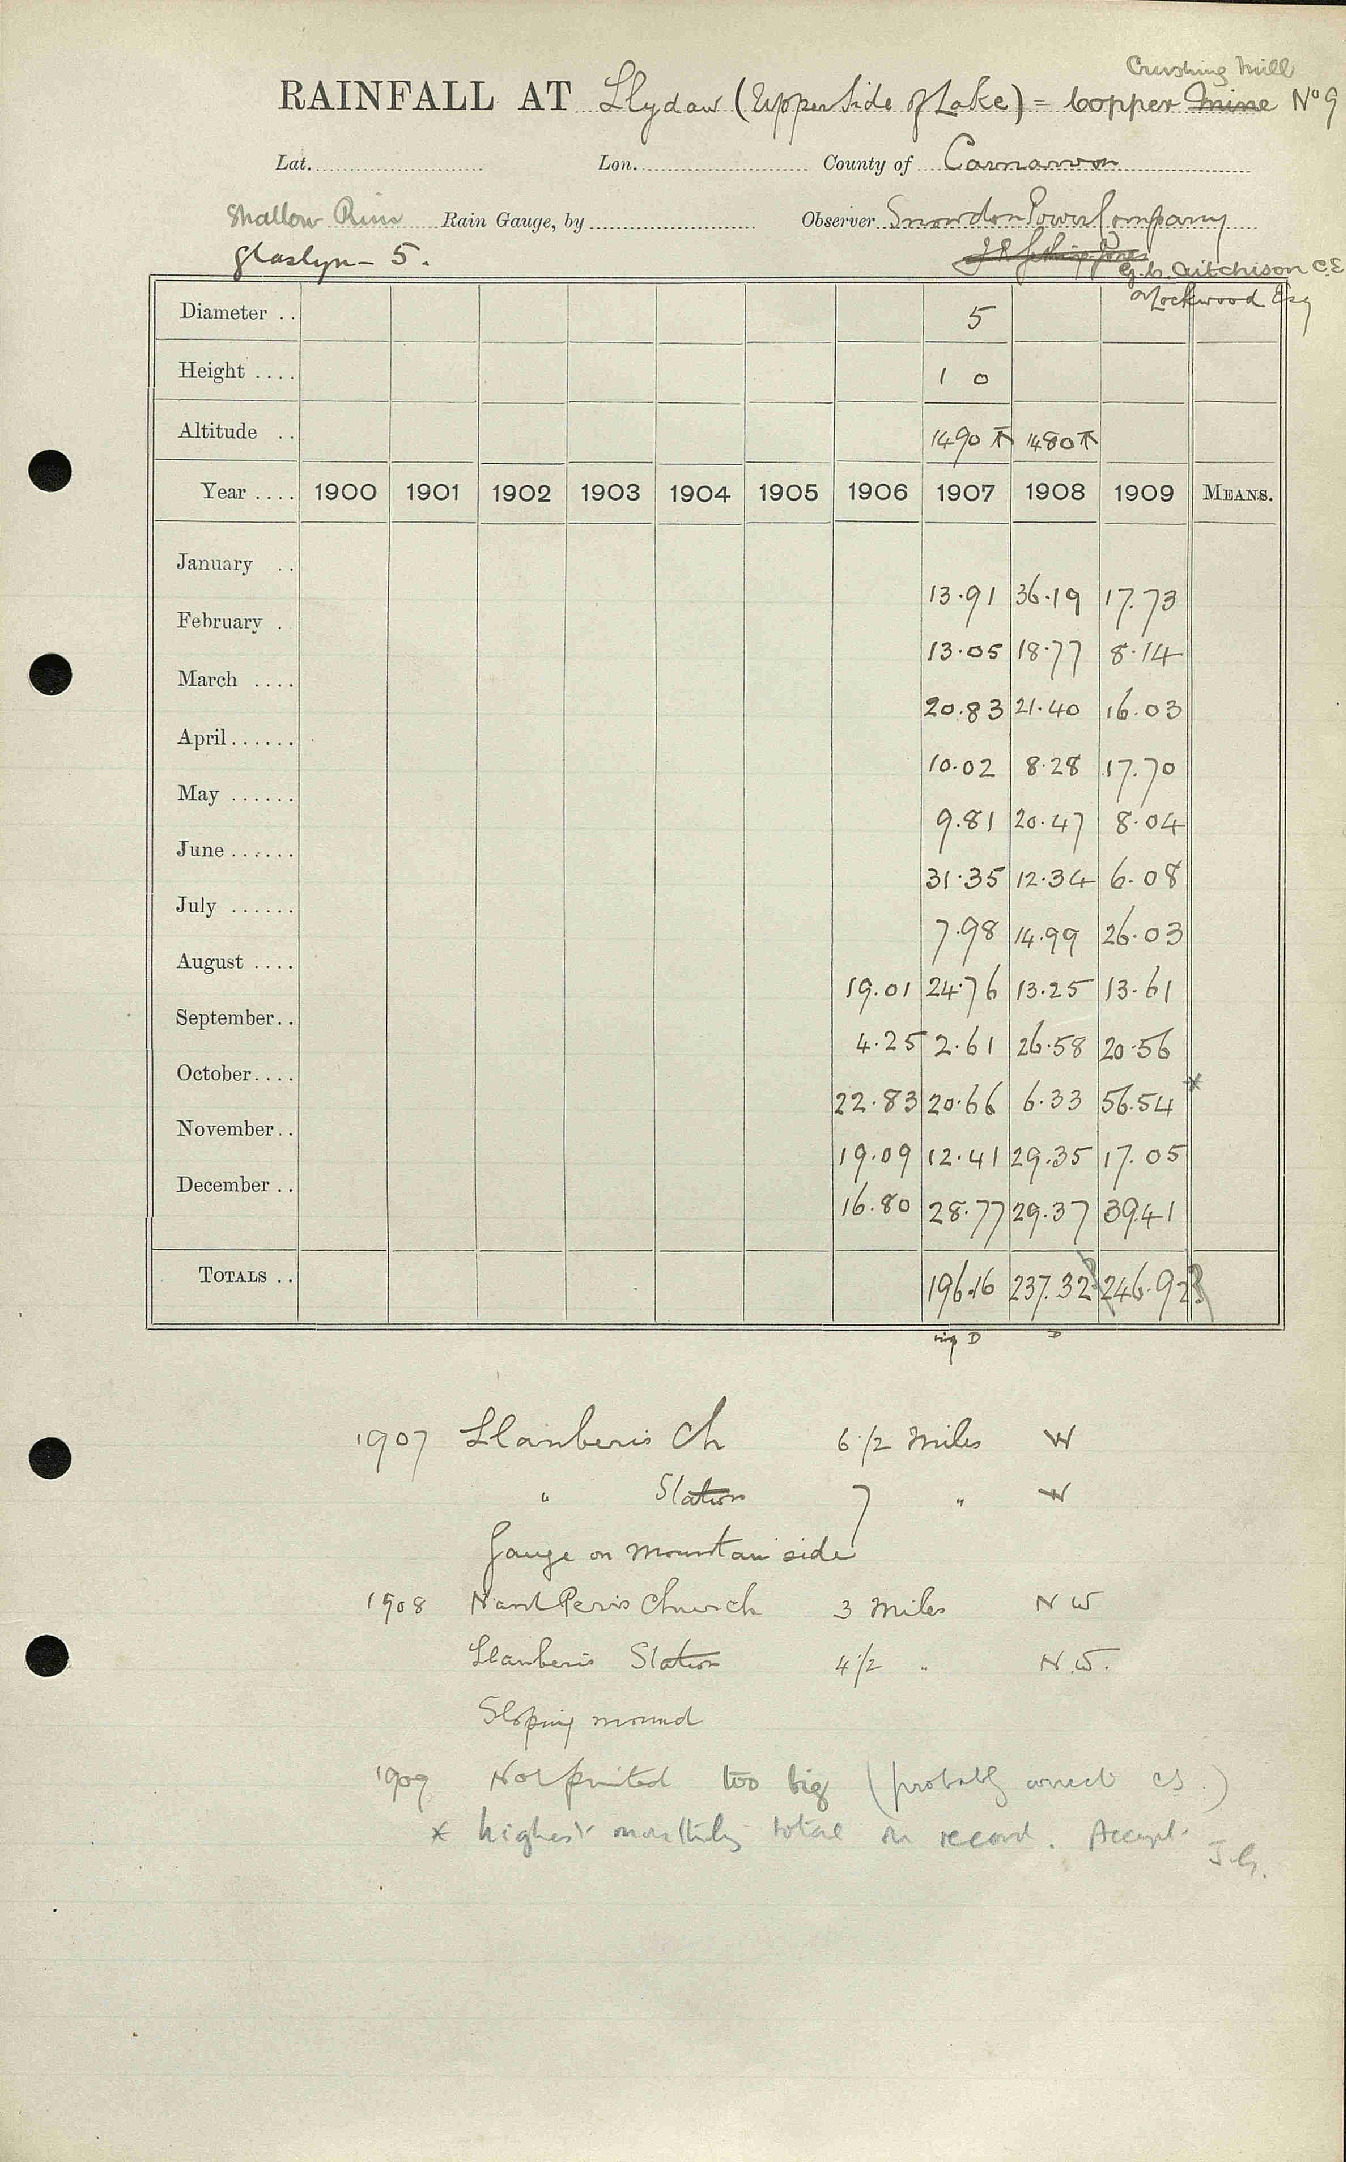 Crushing Mill
RAINFALL AT Llydaw (Upper Side of Lake) = Copper Mine No 9
Lat. Lon. County of Carnarvon
Shallow Rim Rain Gauge, by Observer Snowdon Power Company
Glaslyn - 5.
G. C. Aitchison C.E.
Lockwood Esq
Diameter .. 5
Height .... 1 0
Altitude .. 1490 1480
Year .... 1900 1901 1902 1903 1904 1905 1906 1907 1908 1909 MEANS.
January .. 13.91 36.19 17.73
February . 13.05 18.77 8.14
March .... 20.83 21.40 16.03
April...... 10.02 8.28 17.70
May ...... 9.81 20.47 8.04
June...... 31.35 12.34 6.08
July ...... 7.98 14.99 26.03
August .... 19.01 24.76 13.25 13.61
September.. 4.25 2.61 26.58 20.56
October.... 22.83 20.66 6.33 56.54 *
November.. 19.09 12.41 29.35 17.05
December .. 16.80 28.77 29.37 39.41
TOTALS .. 196.16 237.32 246.92
D D
1907 Llanberis Ch 6 1/2 Miles W
" Station 7 " W
Gauge on Mountain side
1908 Nant Peris Church 3 Miles N W
Llanberis Station 4 1/2 " N.W.
Sloping mound
1909 Not printed too big (probably correct CS.)
* highest monthly total on record. Accept. J.G.